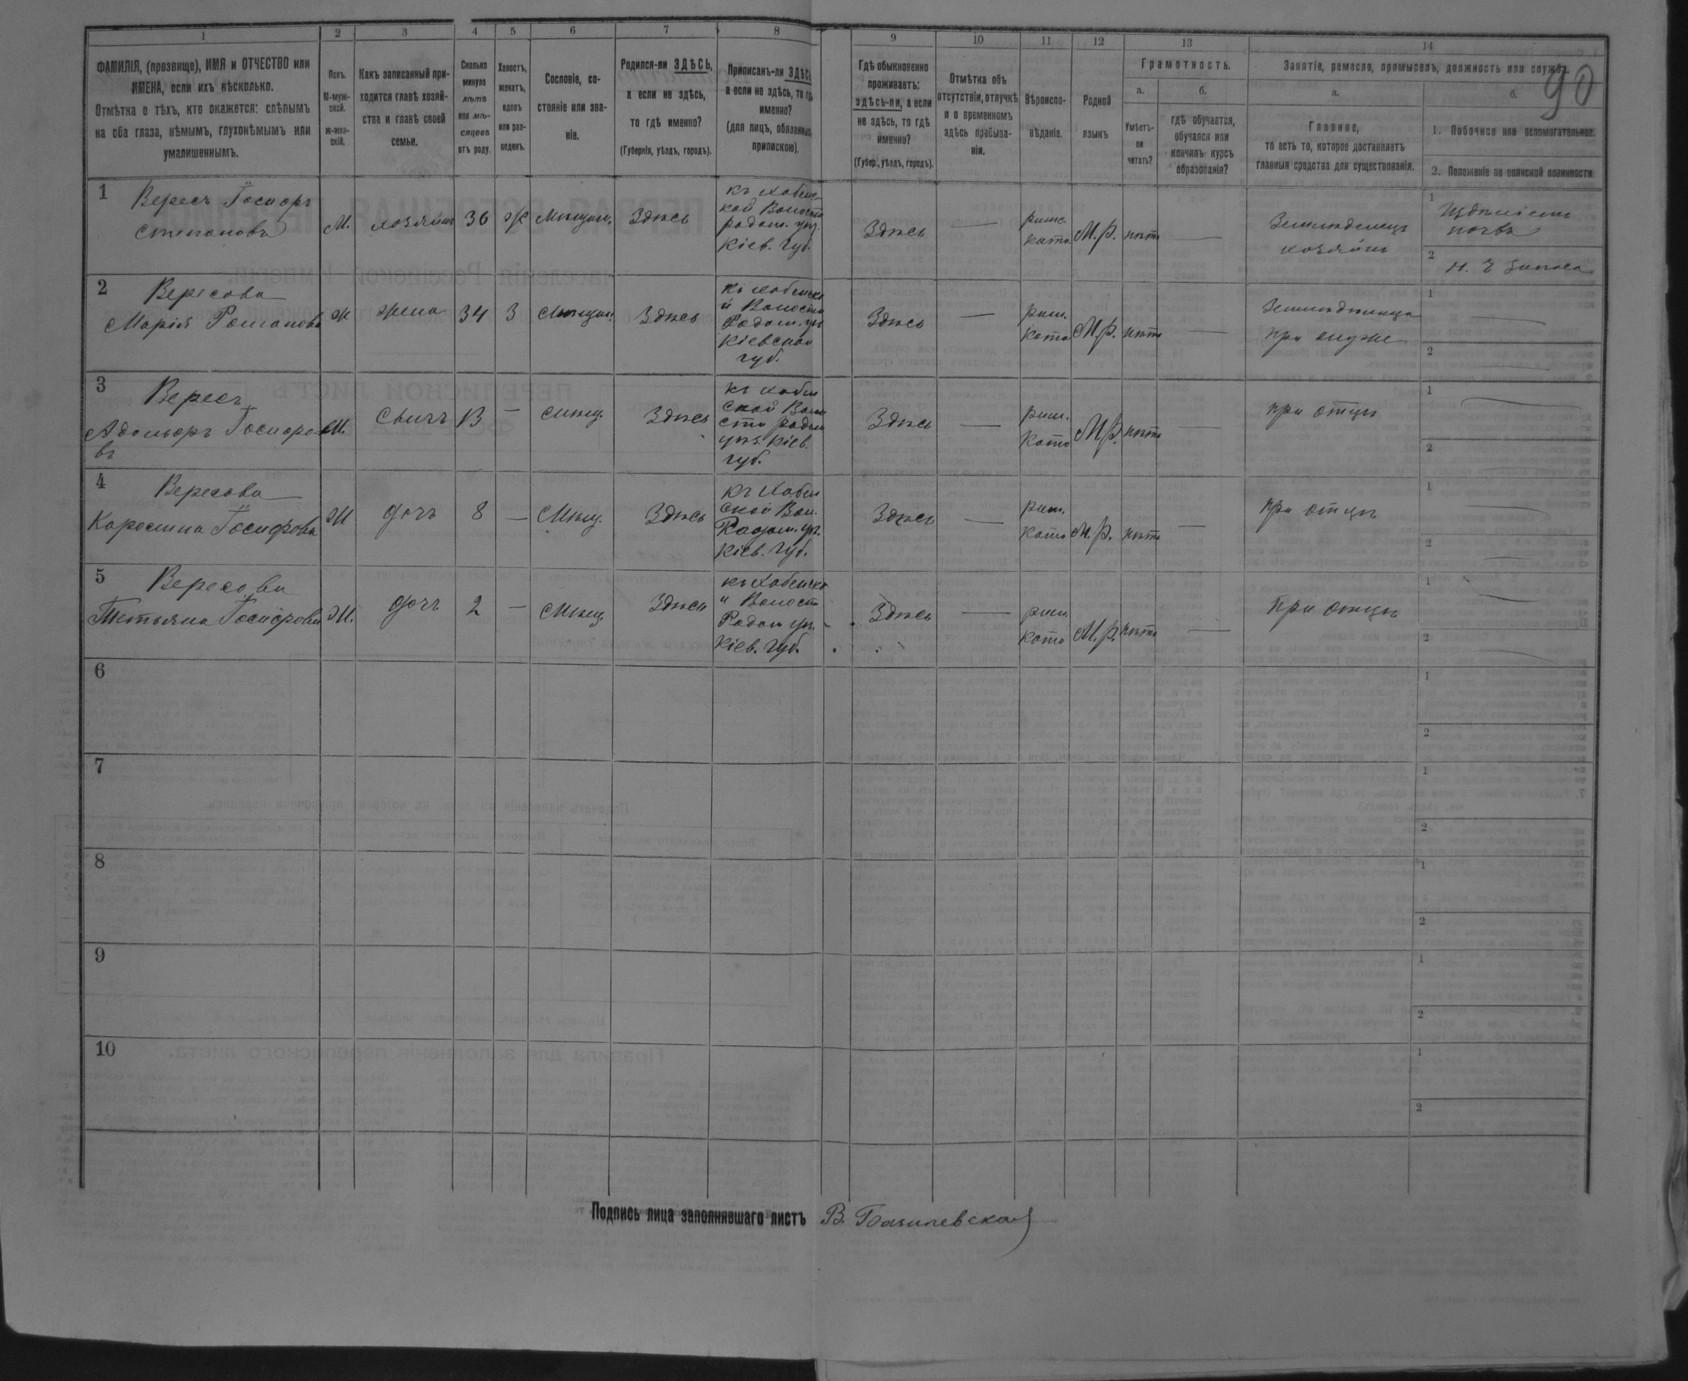 90
1 2 3 4 5 6 7 8 9 10 11 12 13 14
ФАМИЛІЯ, (прозвище), ИМЯ и ОТЧЕСТВО или
ИМЕНА, если ихъ нѣсколько.
Отмѣтка о тѣхъ, кто окажется: слѣпымъ
на оба глаза, нѣмымъ, глухонѣмымъ или
умалишеннымъ.
Полъ.
М-муж-
ской.
ж-жен-
скій.
Какъ записанный при-
ходится главѣ хозяй-
ства и главѣ своей
семьи.
Сколько
минуло
лѣтъ
или мѣ-
сяцевъ
отъ роду.
Холостъ,
женатъ,
вдовъ
или раз-
веденъ.
Сословіе, со-
стояніе или зва-
ніе.
Родился-ли ЗДѢСЬ,
а если не здѣсь,
то гдѣ именно?
(Губернія, уѣздъ, городъ).
Приписанъ-ли ЗДѢСЬ
а если не здѣсь, то гдѣ
именно?
(для лицъ, обязанныхъ
припискою).
Гдѣ обыкновенно
проживаетъ:
здѣсь-ли, а если
не здѣсь, то гдѣ
именно?
(Губер., уѣздъ, городъ).
Отмѣтка объ
отсутствіи, отлучкѣ
и о временномъ
здѣсь пребыва-
ніи.
Вѣроиспо-
вѣданіе.
Родной
языкъ
Грамотность.
а.
Умѣетъ-
ли
читать?
б.
гдѣ обучается,
обучался или
кончилъ курсъ
образованія?
Занятіе, ремесло, промыселъ, должность или служба
а.
Главное,
то есть то, которое доставляетъ
главныя средства для существованія.
б.
1. Побочное или вспомогательное.
2. Положеніе по воинской повинности
1
Вересъ Іосифъ
Степановъ
М.
хозяинъ
36
ж
Мѣщан.
Здѣсь
къ Хабен-
кой Волости
радом. уѣз.
Кіев. Губ.
Здѣсь
—
римс.
като
М.р.
нѣтъ
—
Земледѣлецъ
хозяинъ
1
2
2
Вересова
Марія Романова
ж
жена
34
З
Мѣщан.
Здѣсь
къ Хабенско
й Волости
Радом. уѣз
Кіевской
губ.
Здѣсь
—
рим.
като
М.р.
нѣтъ
—
при мужѣ
1
2
3
Вересъ
Адольфъ Іосифо
въ
М.
сынъ
13
—
мѣщ.
Здѣсь
къ хабен
ской Воло
сти радом
уѣз. Кіев.
губ.
Здѣсь
—
рим.
Като
М.р.
нѣтъ
—
при отцѣ
1
2
4
Вересова
Каролина Іосифова
Ж
дочь
8
—
Мѣщ.
Здѣсь
къ Хабен
ской Вол.
Радом. уѣз.
Кіев. Губ.
Здѣсь
—
рим.
като
М.р.
нѣтъ
—
при отцѣ
1
2
5
Вересова
Тетьяна Іосифова
Ж.
дочь
2
—
Мѣщ.
Здѣсь
къ Хабенско
й Волост
Радом уѣз.
Кіев. Губ.
Здѣсь
—
рим
като
М.р.
нѣтъ
—
При отцѣ
1
2
6
1
2
7
1
2
8
1
2
9
1
2
10
1
2
Подпись лица заполнявшаго листъ В. Базилевская